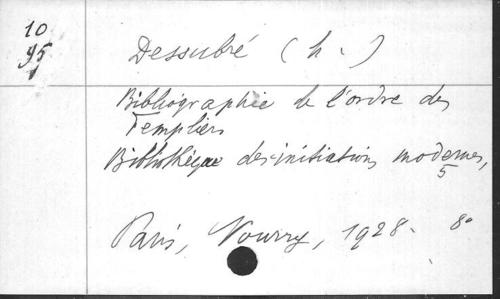 10
95
Dessubré (h.)
Bibliographie de l'ordre des
Templiers
Bibliothèque des initiations modernes,
5
Paris, Nourry, 1928. 8°